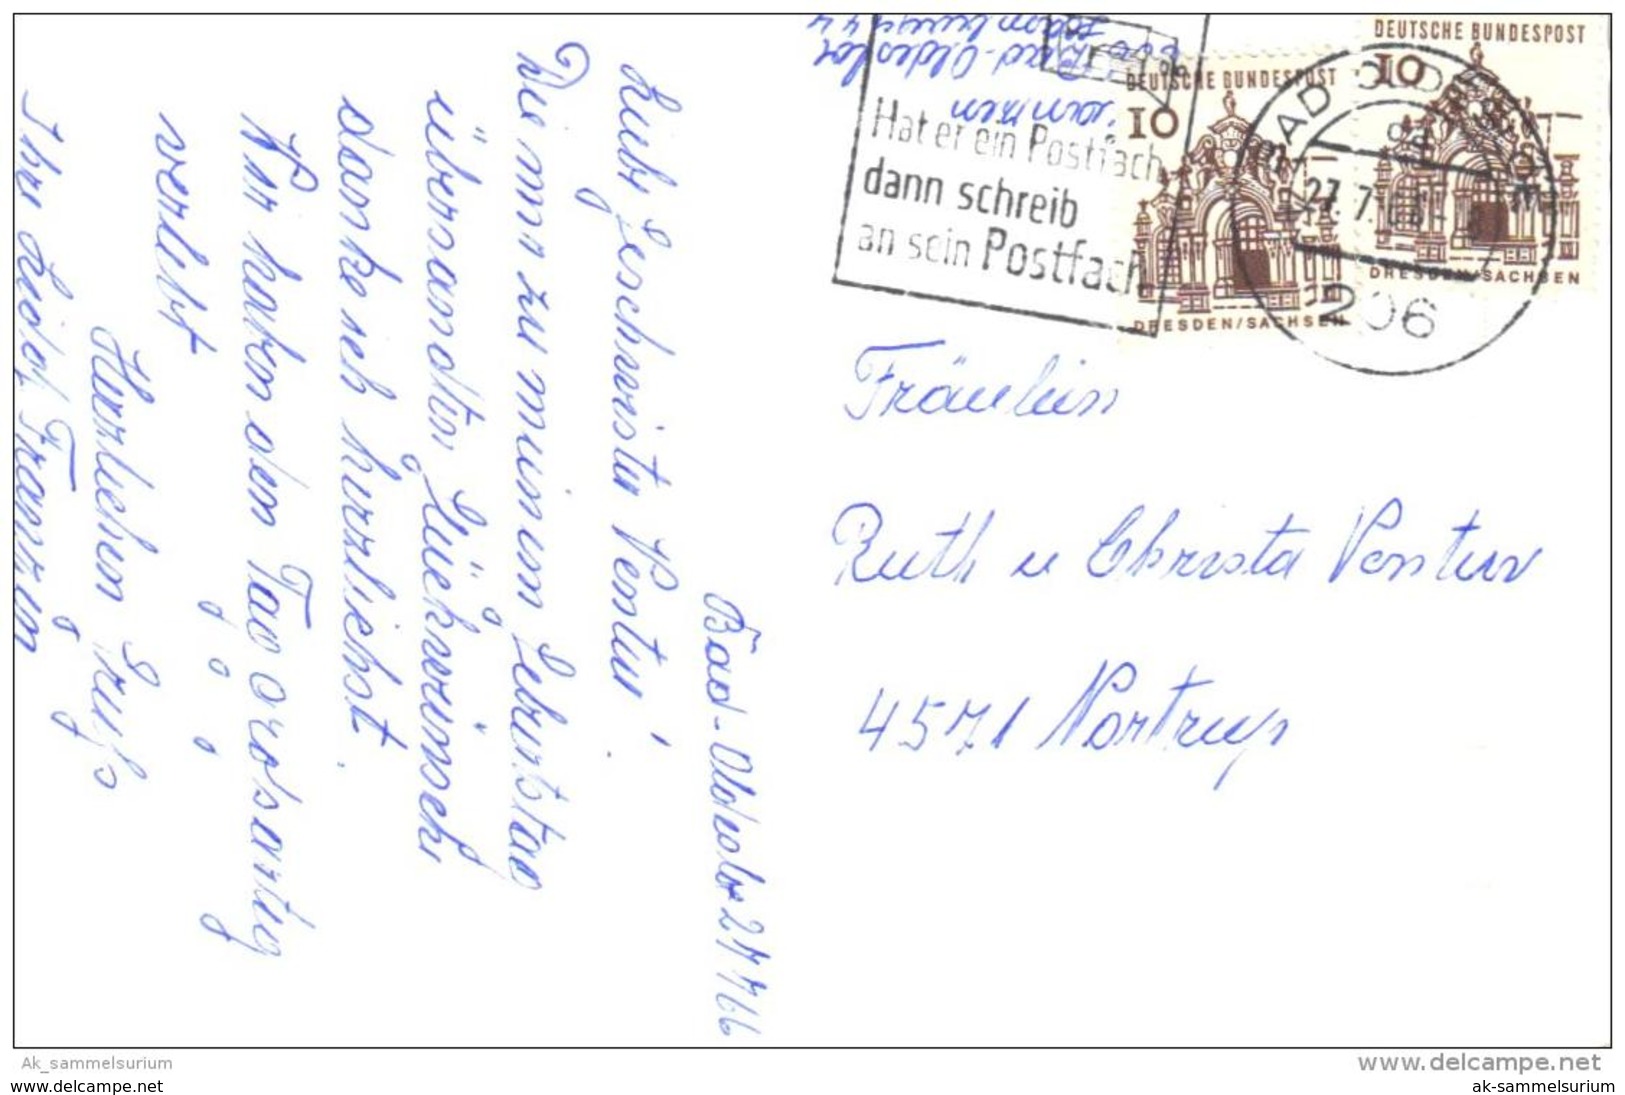 Bad-Oldesloe 27 7 66
Liebe Geschwister Venter!
Die mir zu meinem Geburtstag
übersandten Glückwünsche
danke ich herzlichst.
Wir haben den Tag großartig
verlebt
Herzlichen Gruß
Ihre
206 Bad-Oldesloe
Hamburger
Hat er ein Postfach
dann schreib
an sein Postfach
DEUTSCHE BUNDESPOST
10
DRESDEN/SACHSEN
DEUTSCHE BUNDESPOST
10
DRESDEN/SACHSEN
BAD OLDESLOE
27.7.66
206
Fräulein
Ruth u Christa Venter
4571 Nortrup
Ak_sammelsurium
www.delcampe.net
www.delcampe.net
ak-sammelsurium